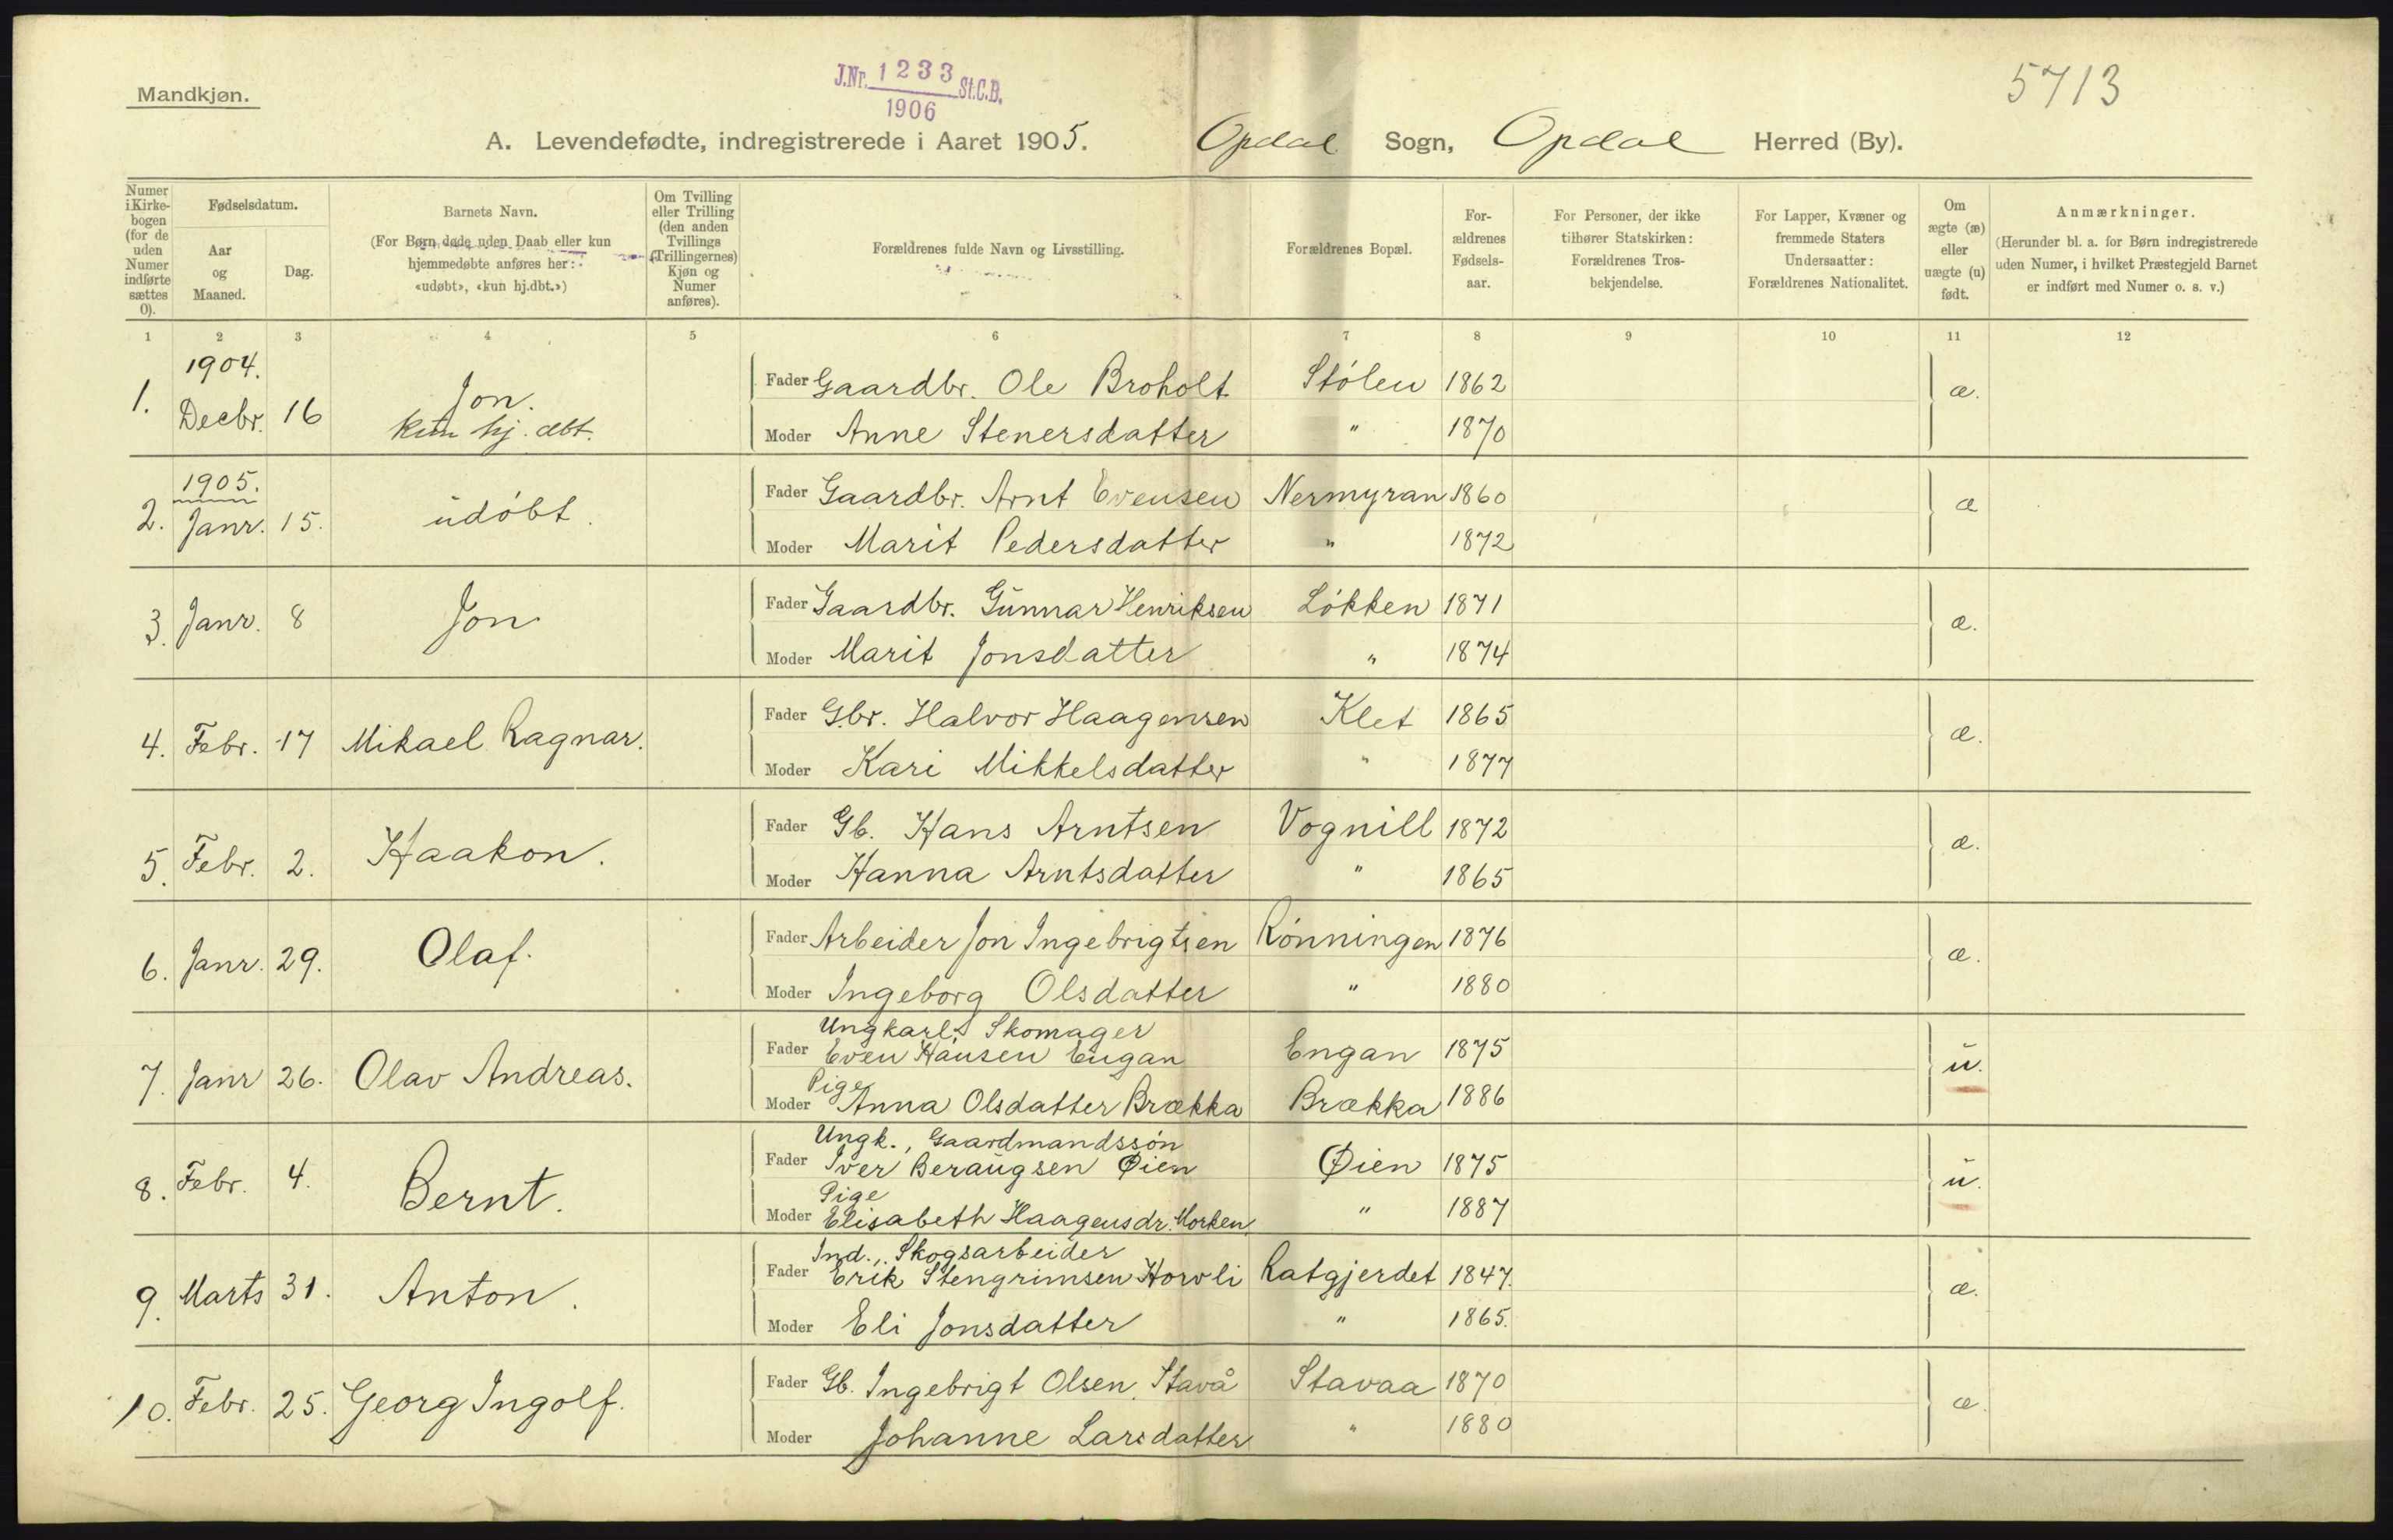 Mandkjøn.
J.Nr. 1233 St.C.B.
1906
5713
A. Levendefødte, indregistrerede i Aaret 1905. Opdal Sogn, Opdal Herred (By).
Numer i Kirkebogen (for de uden Numer indførte sættes 0).
Fødselsdatum.
Aar og Maaned.
Dag.
Barnets Navn.
(For Børn døde uden Daab eller kun hjemmedøbte anføres her: «udøbt», «kun hj.dbt.»)
Om Tvilling eller Trilling (den anden Tvillings (Trillingernes) Kjøn og Numer anføres).
Forældrenes fulde Navn og Livsstilling.
Forældrenes Bopæl.
Forældrenes Fødselsaar.
For Personer, der ikke tilhører Statskirken: Forældrenes Trosbekjendelse.
For Lapper, Kvæner og fremmede Staters Undersaatter: Forældrenes Nationalitet.
Om ægte (æ) eller uægte (u) født.
Anmærkninger.
(Herunder bl. a. for Børn indregistrerede uden Numer, i hvilket Præstegjeld Barnet er indført med Numer o. s. v.)
1 2 3 4 5 6 7 8 9 10 11 12
1904.
1. Decbr. 16 Jon. kun hj. dbt. Fader Gaardbr. Ole Broholt Stölen 1862 æ.
Moder Anne Stenersdatter " 1870
1905.
2. Janr. 15. udöbt. Fader Gaardbr. Arnt Evensen Nermyran 1860 æ
Moder Marit Pedersdatter " 1872
3. Janr. 8 Jon Fader Gaardbr. Gunnar Henriksen Lökken 1871 æ.
Moder Marit Jonsdatter " 1874
4. Febr. 17 Mikael Ragnar. Fader Gbr. Halvor Haagensen Klet 1865 æ.
Moder Kari Mikkelsdatter " 1877
5. Febr. 2. Haakon. Fader Gb. Hans Arntsen Vognill 1872 æ.
Moder Hanna Arntsdatter " 1865
6. Janr. 29. Olaf. Fader Arbeider Jon Ingebrigtsen Rönningen 1876 æ.
Moder Ingeborg Olsdatter " 1880
Ungkarl, Skomager
7. Janr 26. Olav Andreas. Fader Even Hansen Engan Engan 1875 u.
Pige
Moder Anna Olsdatter Brækka Brækka 1886
Ungk., Gaardmandssön
8. Febr. 4. Bernt. Fader Iver Beraugsen Øien Øien 1875 u.
Pige
Moder Elisabeth Haagensdr. Morken " 1887
Ind., Skogsarbeider
9. Marts 31. Anton. Fader Erik Stengrimsen Horvli Ratgjerdet 1847. æ.
Moder Eli Jonsdatter " 1865.
10. Febr. 25. Georg Ingolf. Fader Gb. Ingebrigt Olsen Stavå Stavaa 1870 æ.
Moder Johanne Larsdatter " 1880